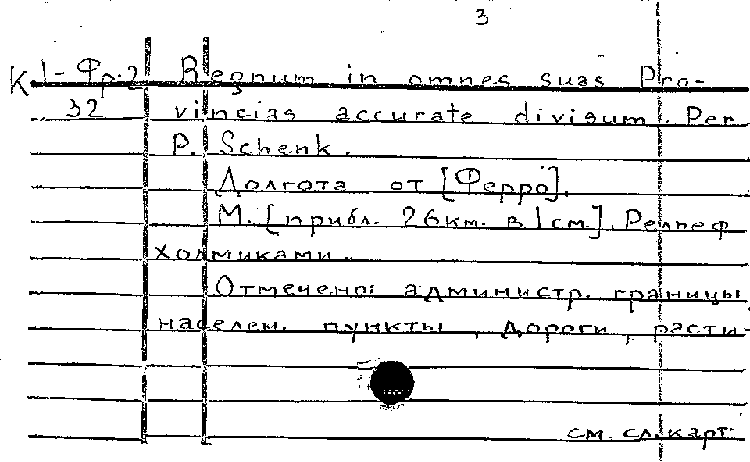 3
К 1-Фр.2 Regnum in omnes suas Pro-
32 vincias accurate divisum. Per
P. Schenk.
Долгота от [Ферро].
М. [прибл. 26км. в 1см]. Рельеф
холмиками.
Отмечено: администр. границы,
населен. пункты, дороги, расти-
см. сл. карт.